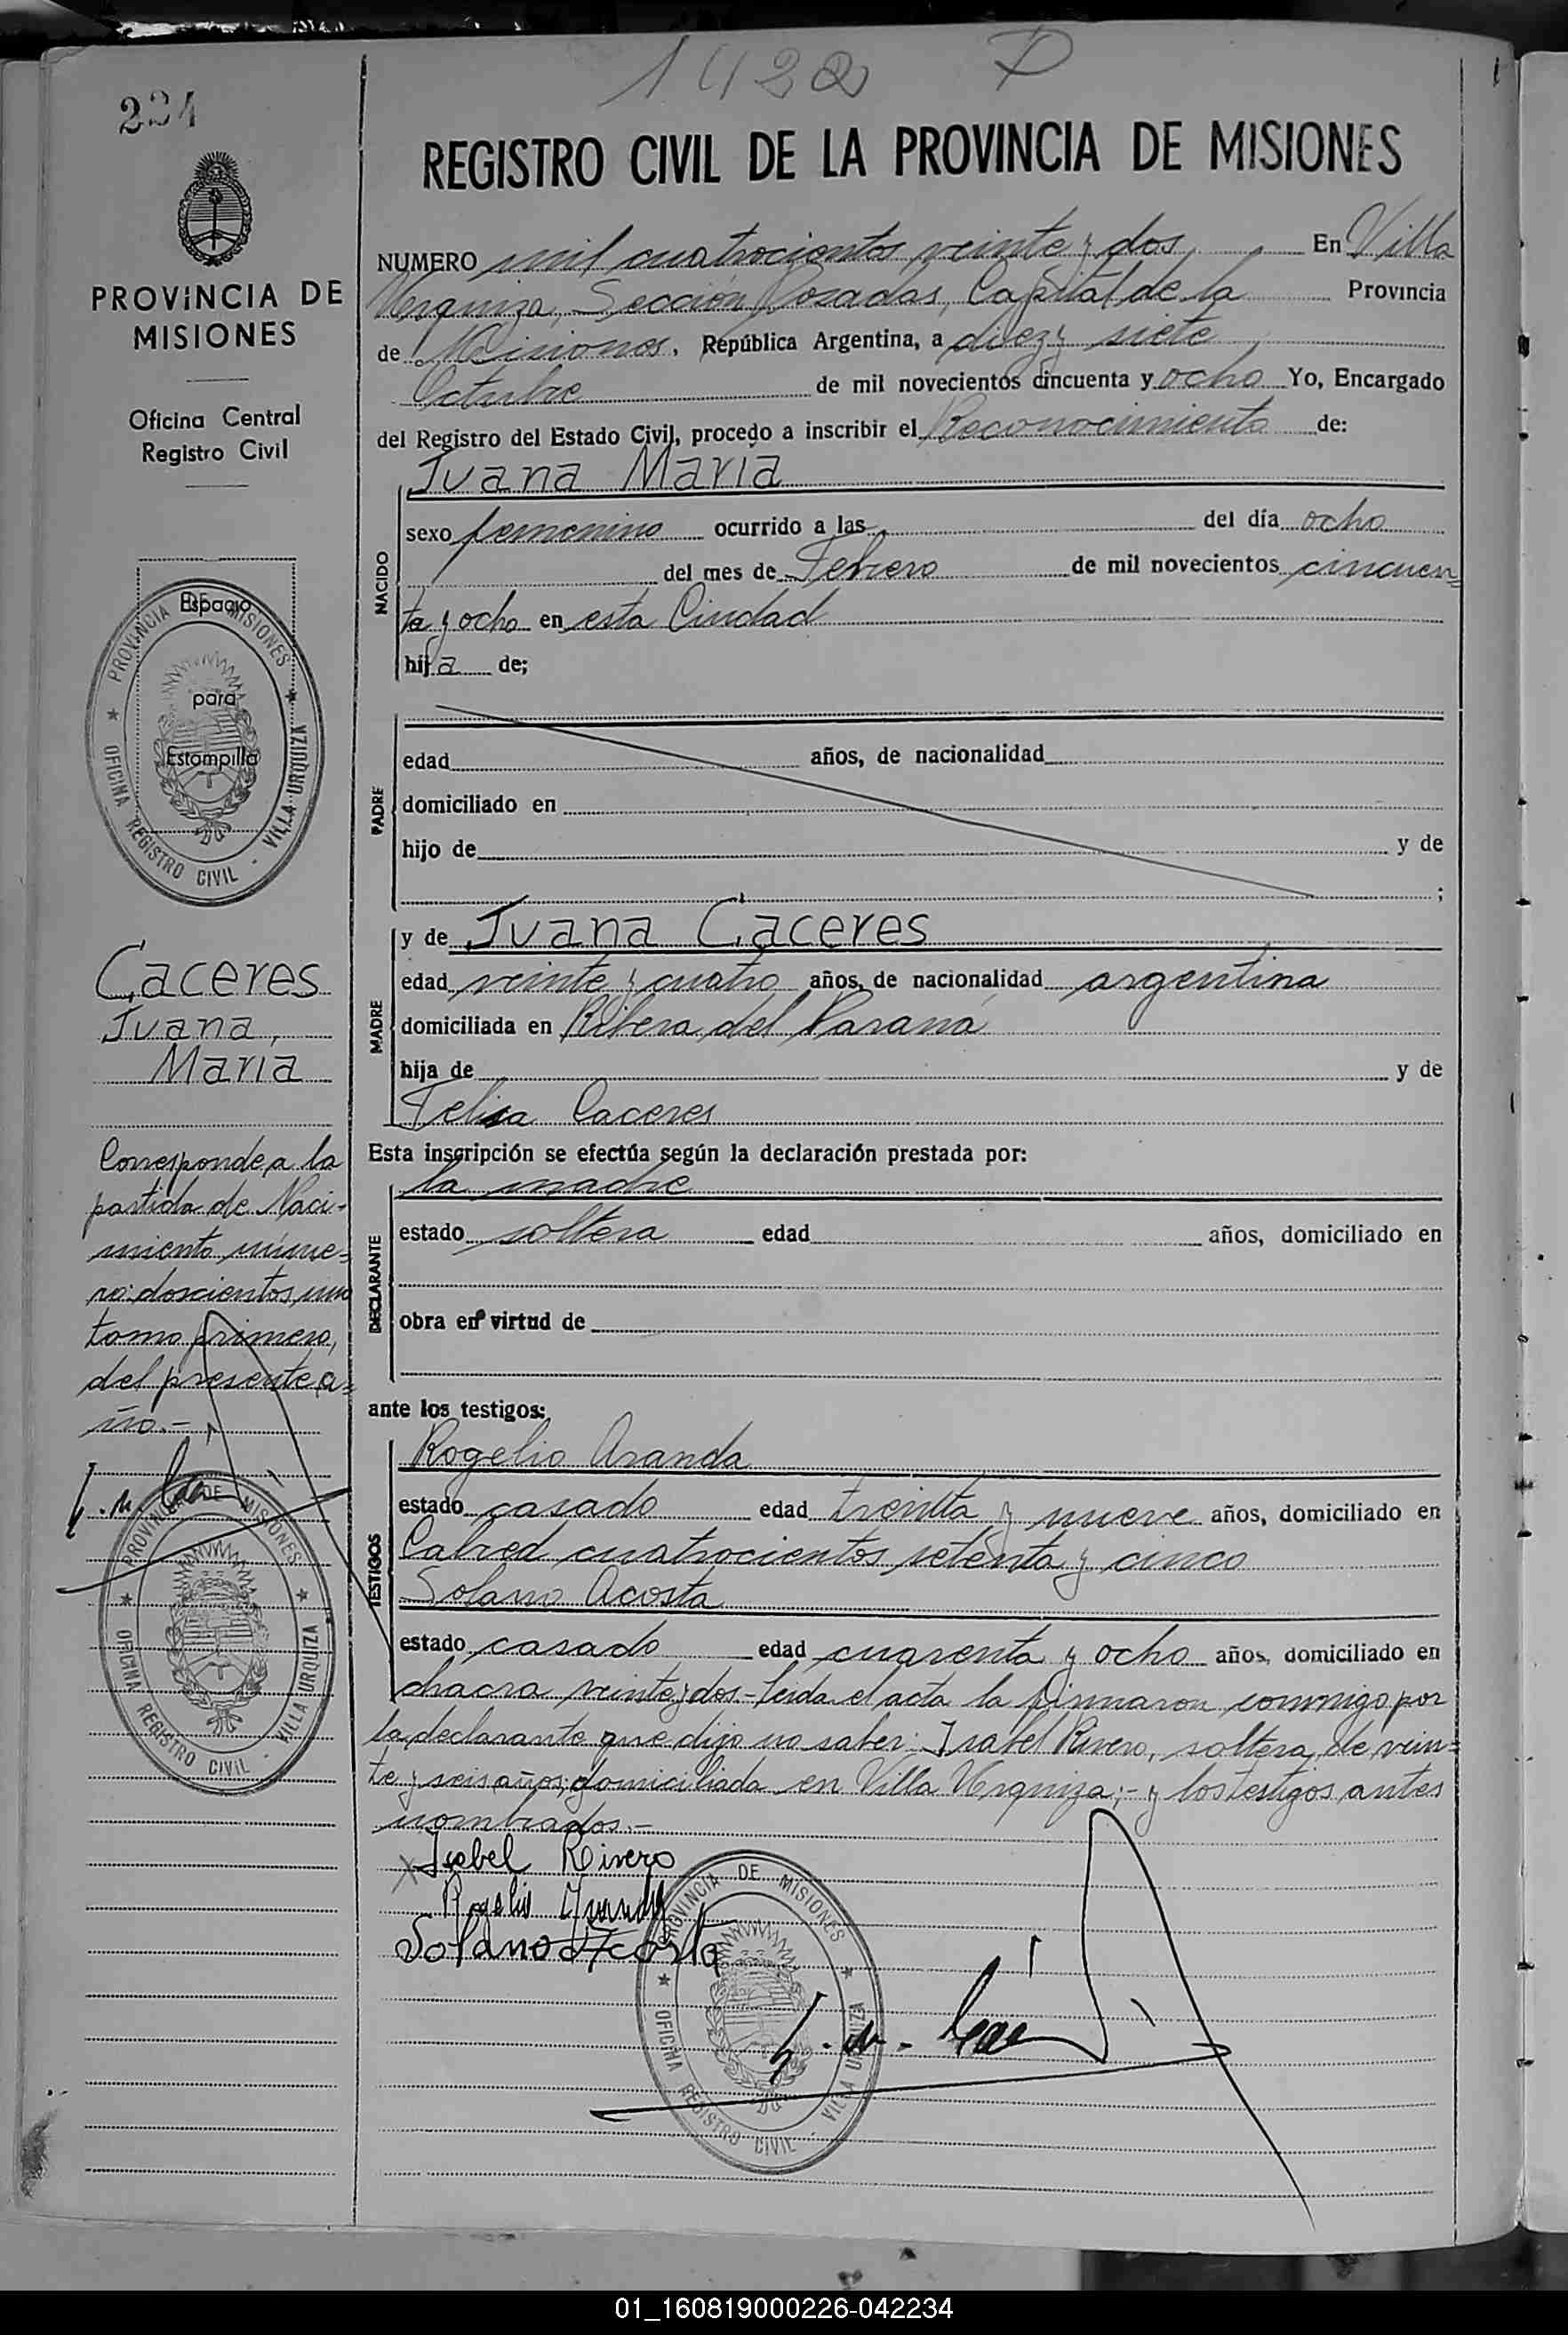 1422
224
PROVINCIA DE
MISIONES
Oficina Central
Registro Civil
Espacio
para
Estampilla
PROVINCIA DE MISIONES
OFICINA REGISTRO CIVIL - VILLA URQUIZA
Caceres
Juana,
Maria
Corresponde a la
partida de Naci-
miento núme=
ro: doscientos, uno
tomo primero,
del presente a=
ño.-
PROVINCIA DE MISIONES
OFICINA REGISTRO CIVIL - VILLA URQUIZA
REGISTRO CIVIL DE LA PROVINCIA DE MISIONES
NUMERO mil cuatrocientos veinte y dos En Villa
Urquiza, Sección Posadas, Capital de la Provincia
de Misiones, República Argentina, a diez y siete
Octubre de mil novecientos cincuenta y ocho Yo, Encargado
del Registro del Estado Civil, procedo a inscribir el Reconocimiento de:
Juana Maria
NACIDO
sexo femenino ocurrido a las del día ocho
del mes de Febrero de mil novecientos cincuen=
ta y ocho en esta Ciudad
hija de;
PADRE
edad años, de nacionalidad
domiciliado en
hijo de y de
;
MADRE
y de Juana Caceres
edad veinte y cuatro años, de nacionalidad argentina
domiciliada en Ribera del Parana
hija de y de
Felisa Caceres
Esta inscripción se efectúa según la declaración prestada por:
la madre
DECLARANTE
estado soltera edad años, domiciliado en
obra en virtud de
ante los testigos:
Rogelio Aranda
TESTIGOS
estado casado edad treinta y nueve años, domiciliado en
Cabred cuatrocientos setenta y cinco
Solano Acosta
estado casado edad cuarenta y ocho años, domiciliado en
chacra veinte y dos.- Leida el acta la firmaron conmigo por
la declarante que dijo no saber: Isabel Rivero, soltera, de vein=
te y seis años, domiciliada en Villa Urquiza;- y los testigos antes
nombrados.-
Isabel Rivero
Rogelio Aranda
Solano Acosta
PROVINCIA DE MISIONES
OFICINA REGISTRO CIVIL - VILLA URQUIZA
01_160819000226-042234